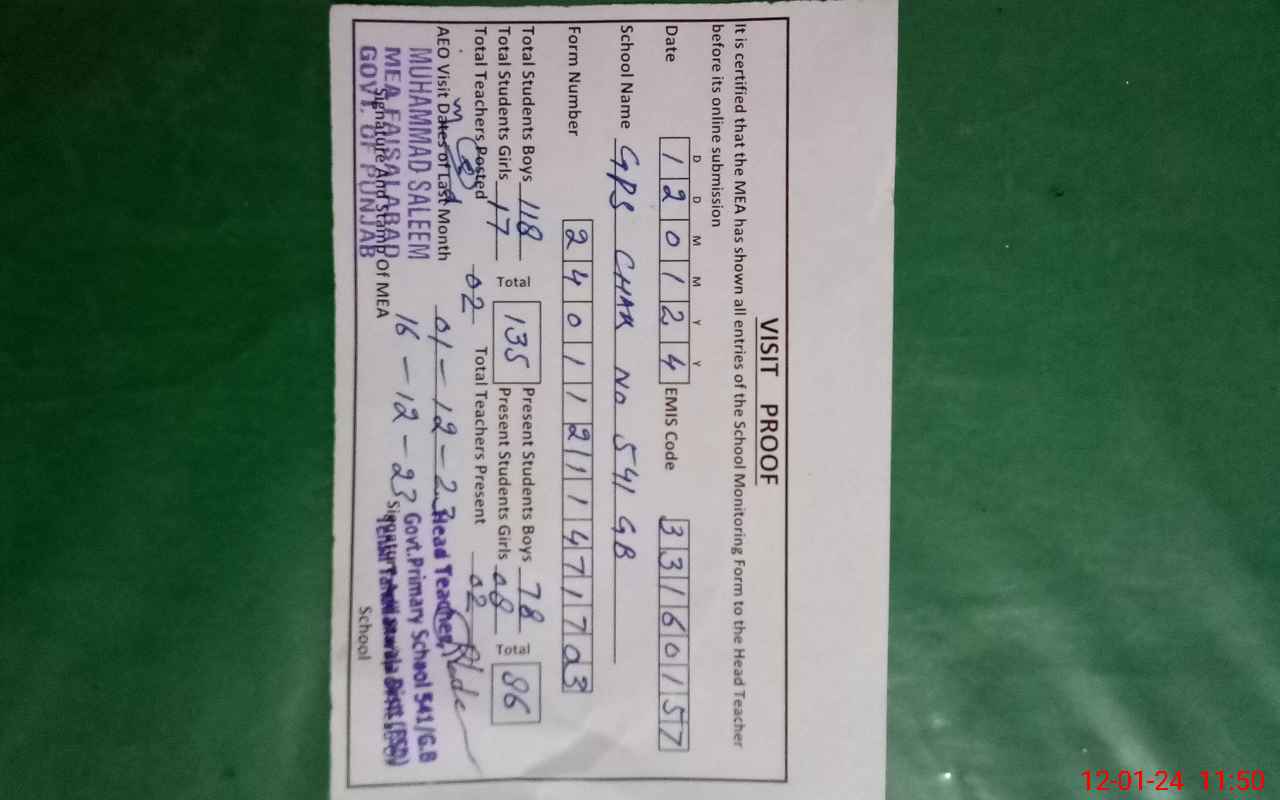 VISIT PROOF
It is certified that the MEA has shown all entries of the School Monitoring Form to the Head Teacher
before its online submission
D D M M Y Y
Date 120124 EMIS Code 33160157
School Name GPS CHAK NO 541 GB
Form Number 2401121147170
Total Students Boys 118 Total 135 Present Students Boys 78 Total 86
Total Students Girls 17 Present Students Girls 08
Total Teachers Posted 02 Total Teachers Present 02
AEO Visit Dates of Last Month 01-12-23
16-12-23
MUHAMMAD SALEEM
MEA FAISALABAD
GOVT. OF PUNJAB
Signature And Stamp Of MEA
Head Teacher,
Govt.Primary School 541/G.B
School
12-01-24 11:50